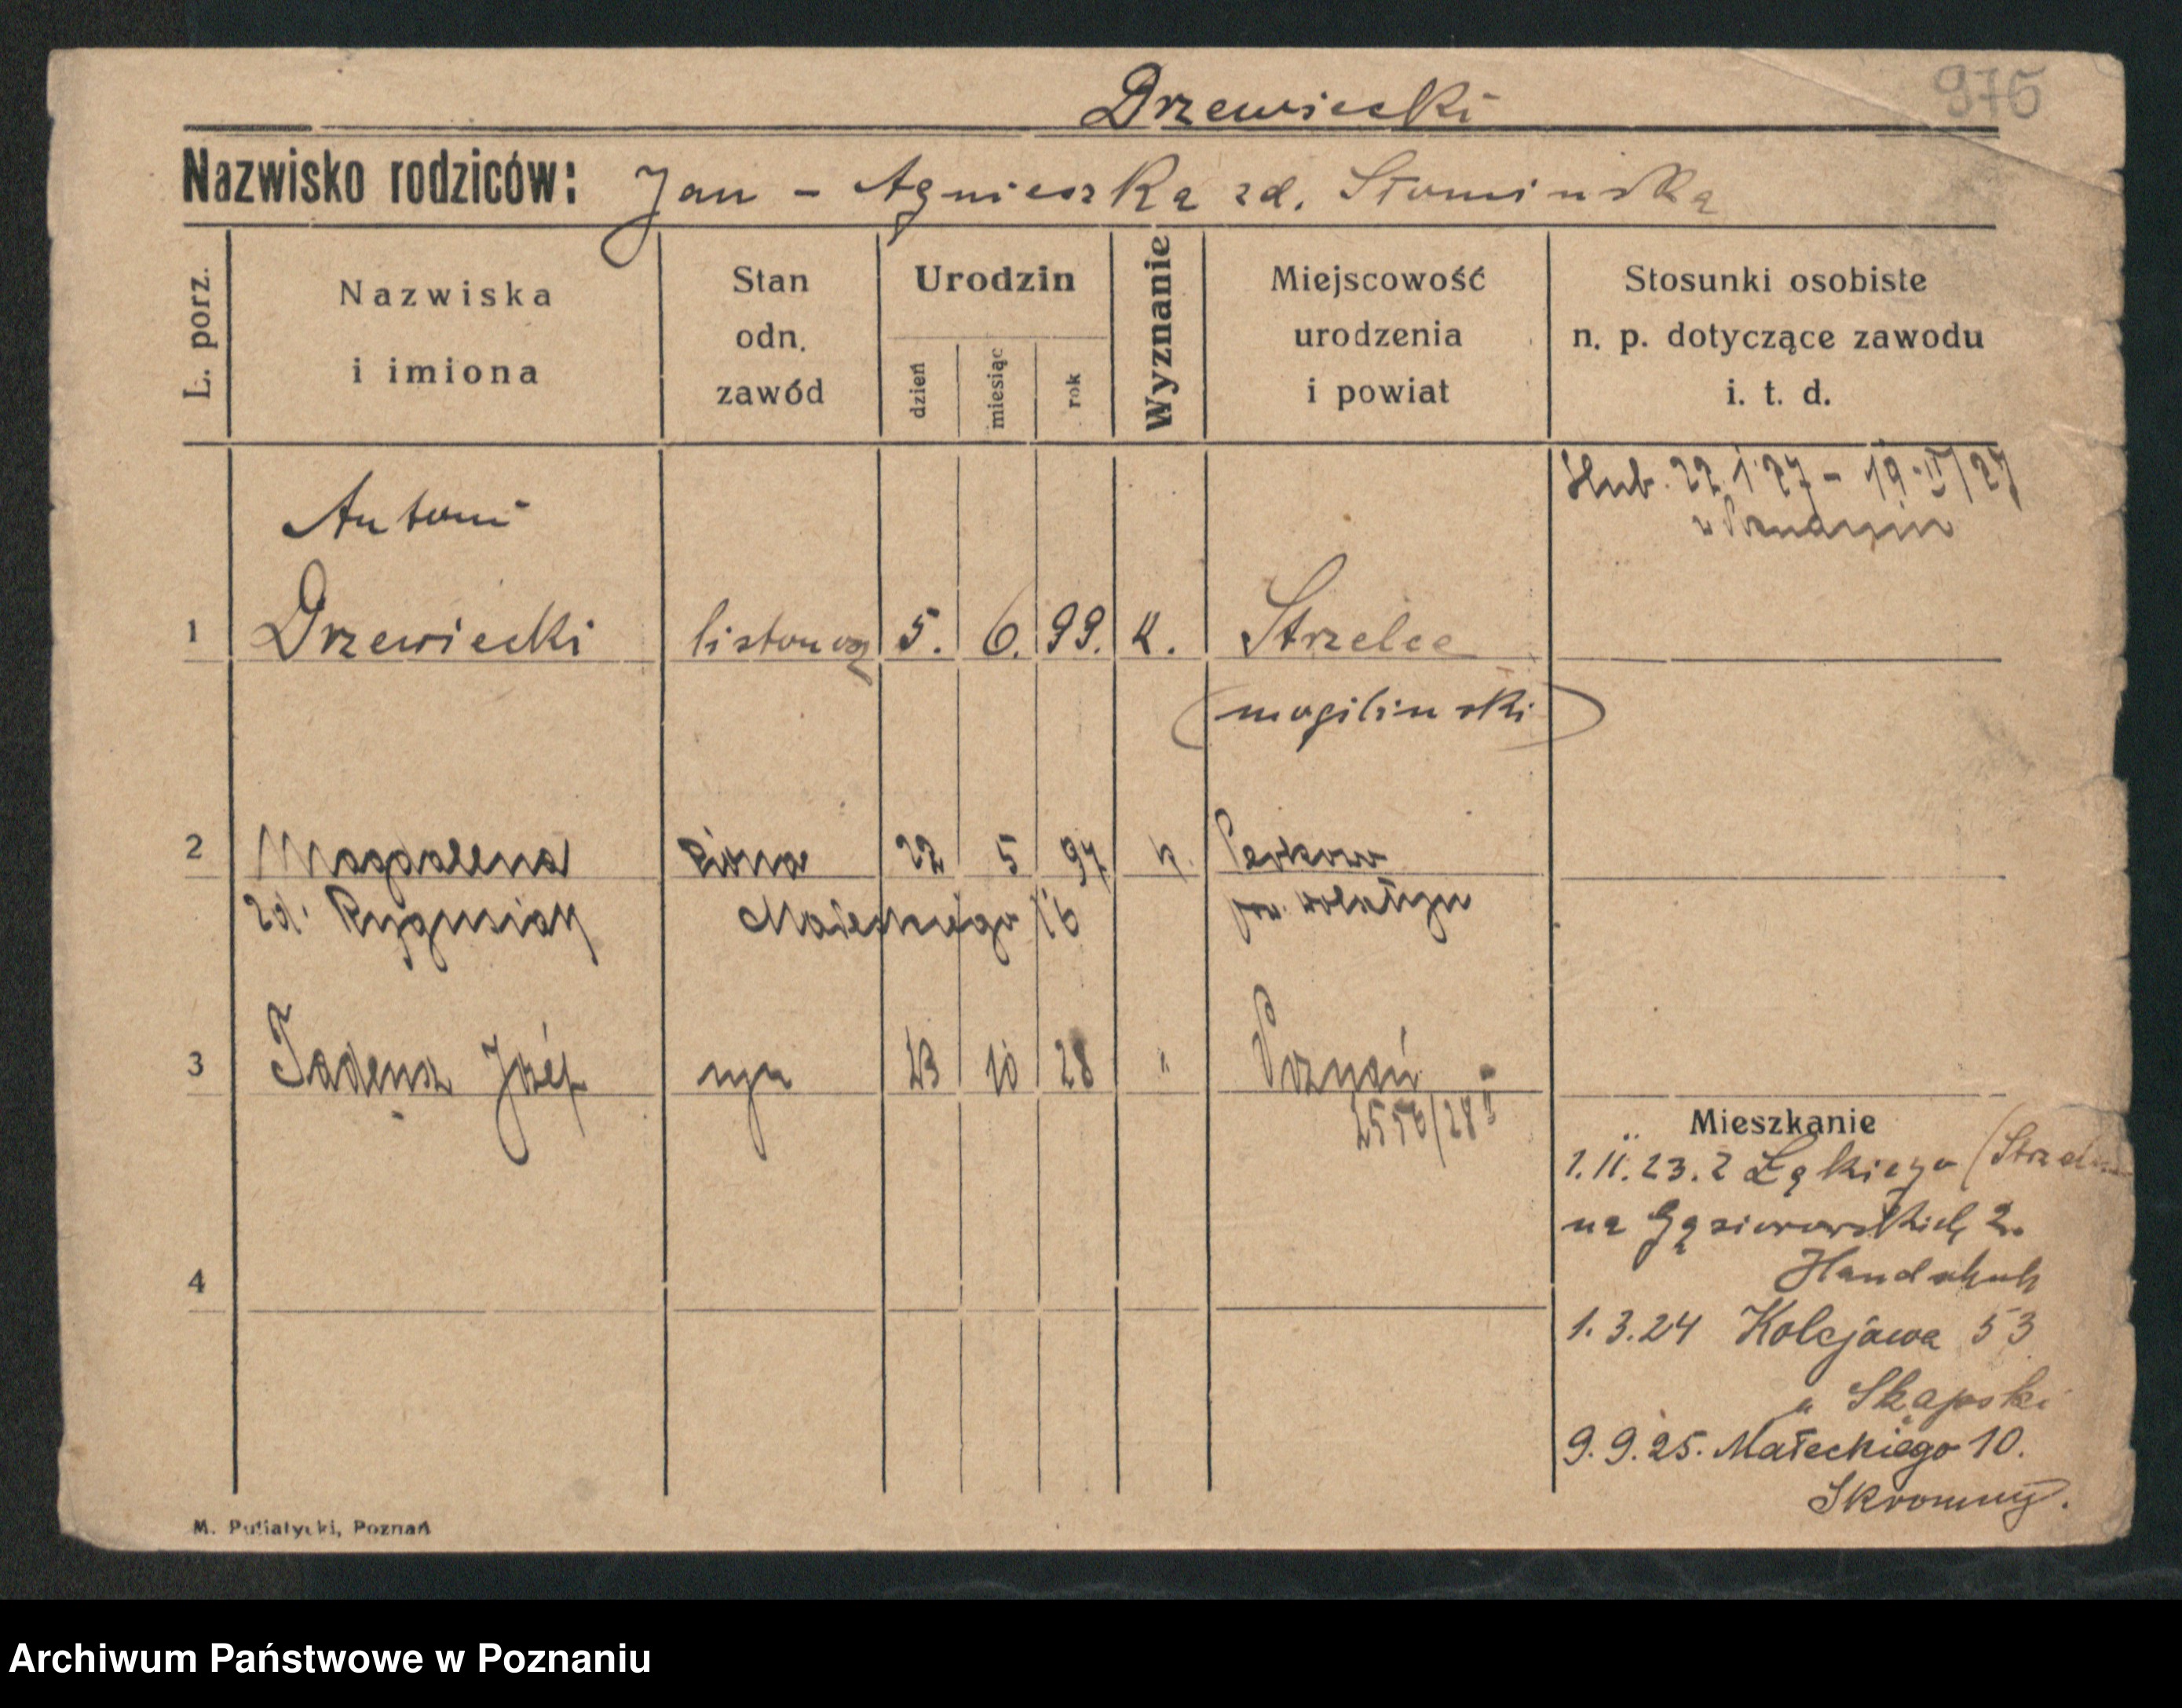 Drzewiecki
975
Nazwisko rodziców: Jan - Agnieszka zd. Słomińska
L. porz.
Nazwiska
i imiona
Stan
odn.
zawód
Urodzin
dzień
miesiąc
rok
Wyznanie
Miejscowość
urodzenia
i powiat
Stosunki osobiste
n. p. dotyczące zawodu
i. t. d.
22.1.27 - 19.II/27
w Poznaniu
Antoni
1 Drzewiecki listonosz 5. 6. 99. K. Strzelce
(mogilinski)
2 Magdalena żona 22 5 97 k.
zd. Małeckiego
3 Tadeusz Józef syn 23 10 28 " Poznań
2556/28
Mieszkanie
1.II.23. z Łąkiego
na Gąsiorowskich 2.
Handschuh
4
1.3.24 Kolejowa 53
u Skąpski
9.9.25. Małeckiego 10.
Skromny.
M. Putiatycki, Poznań
Archiwum Państwowe w Poznaniu